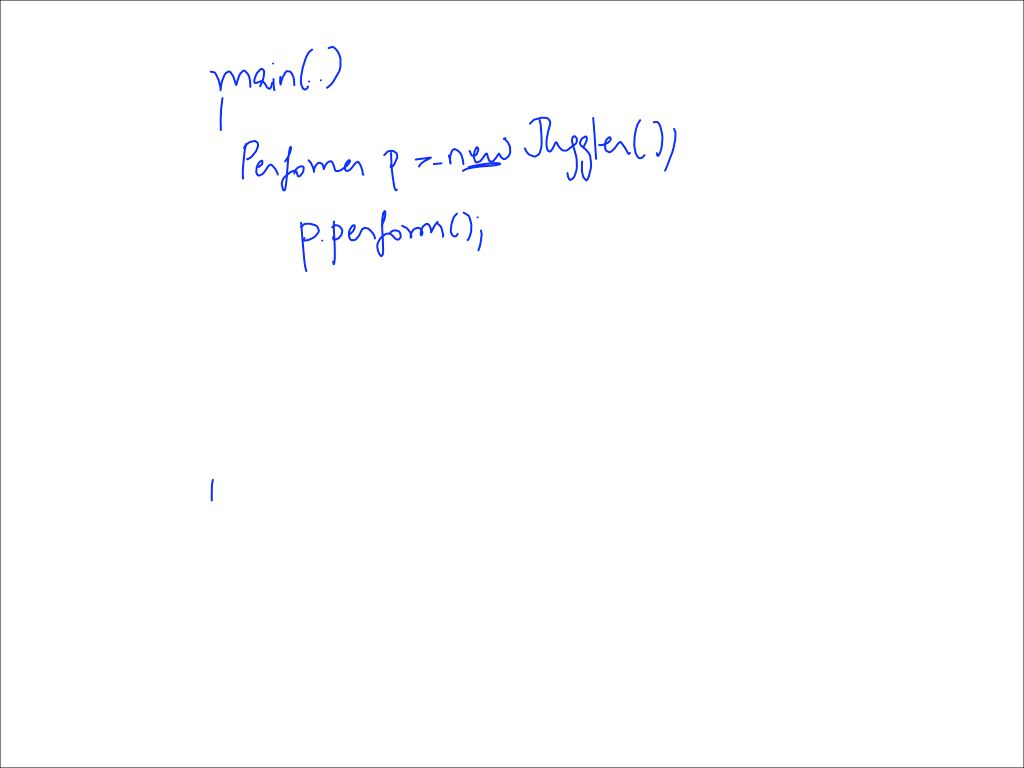 main(..)
|
Perfomer p = new Juggler();
p.perform();
|